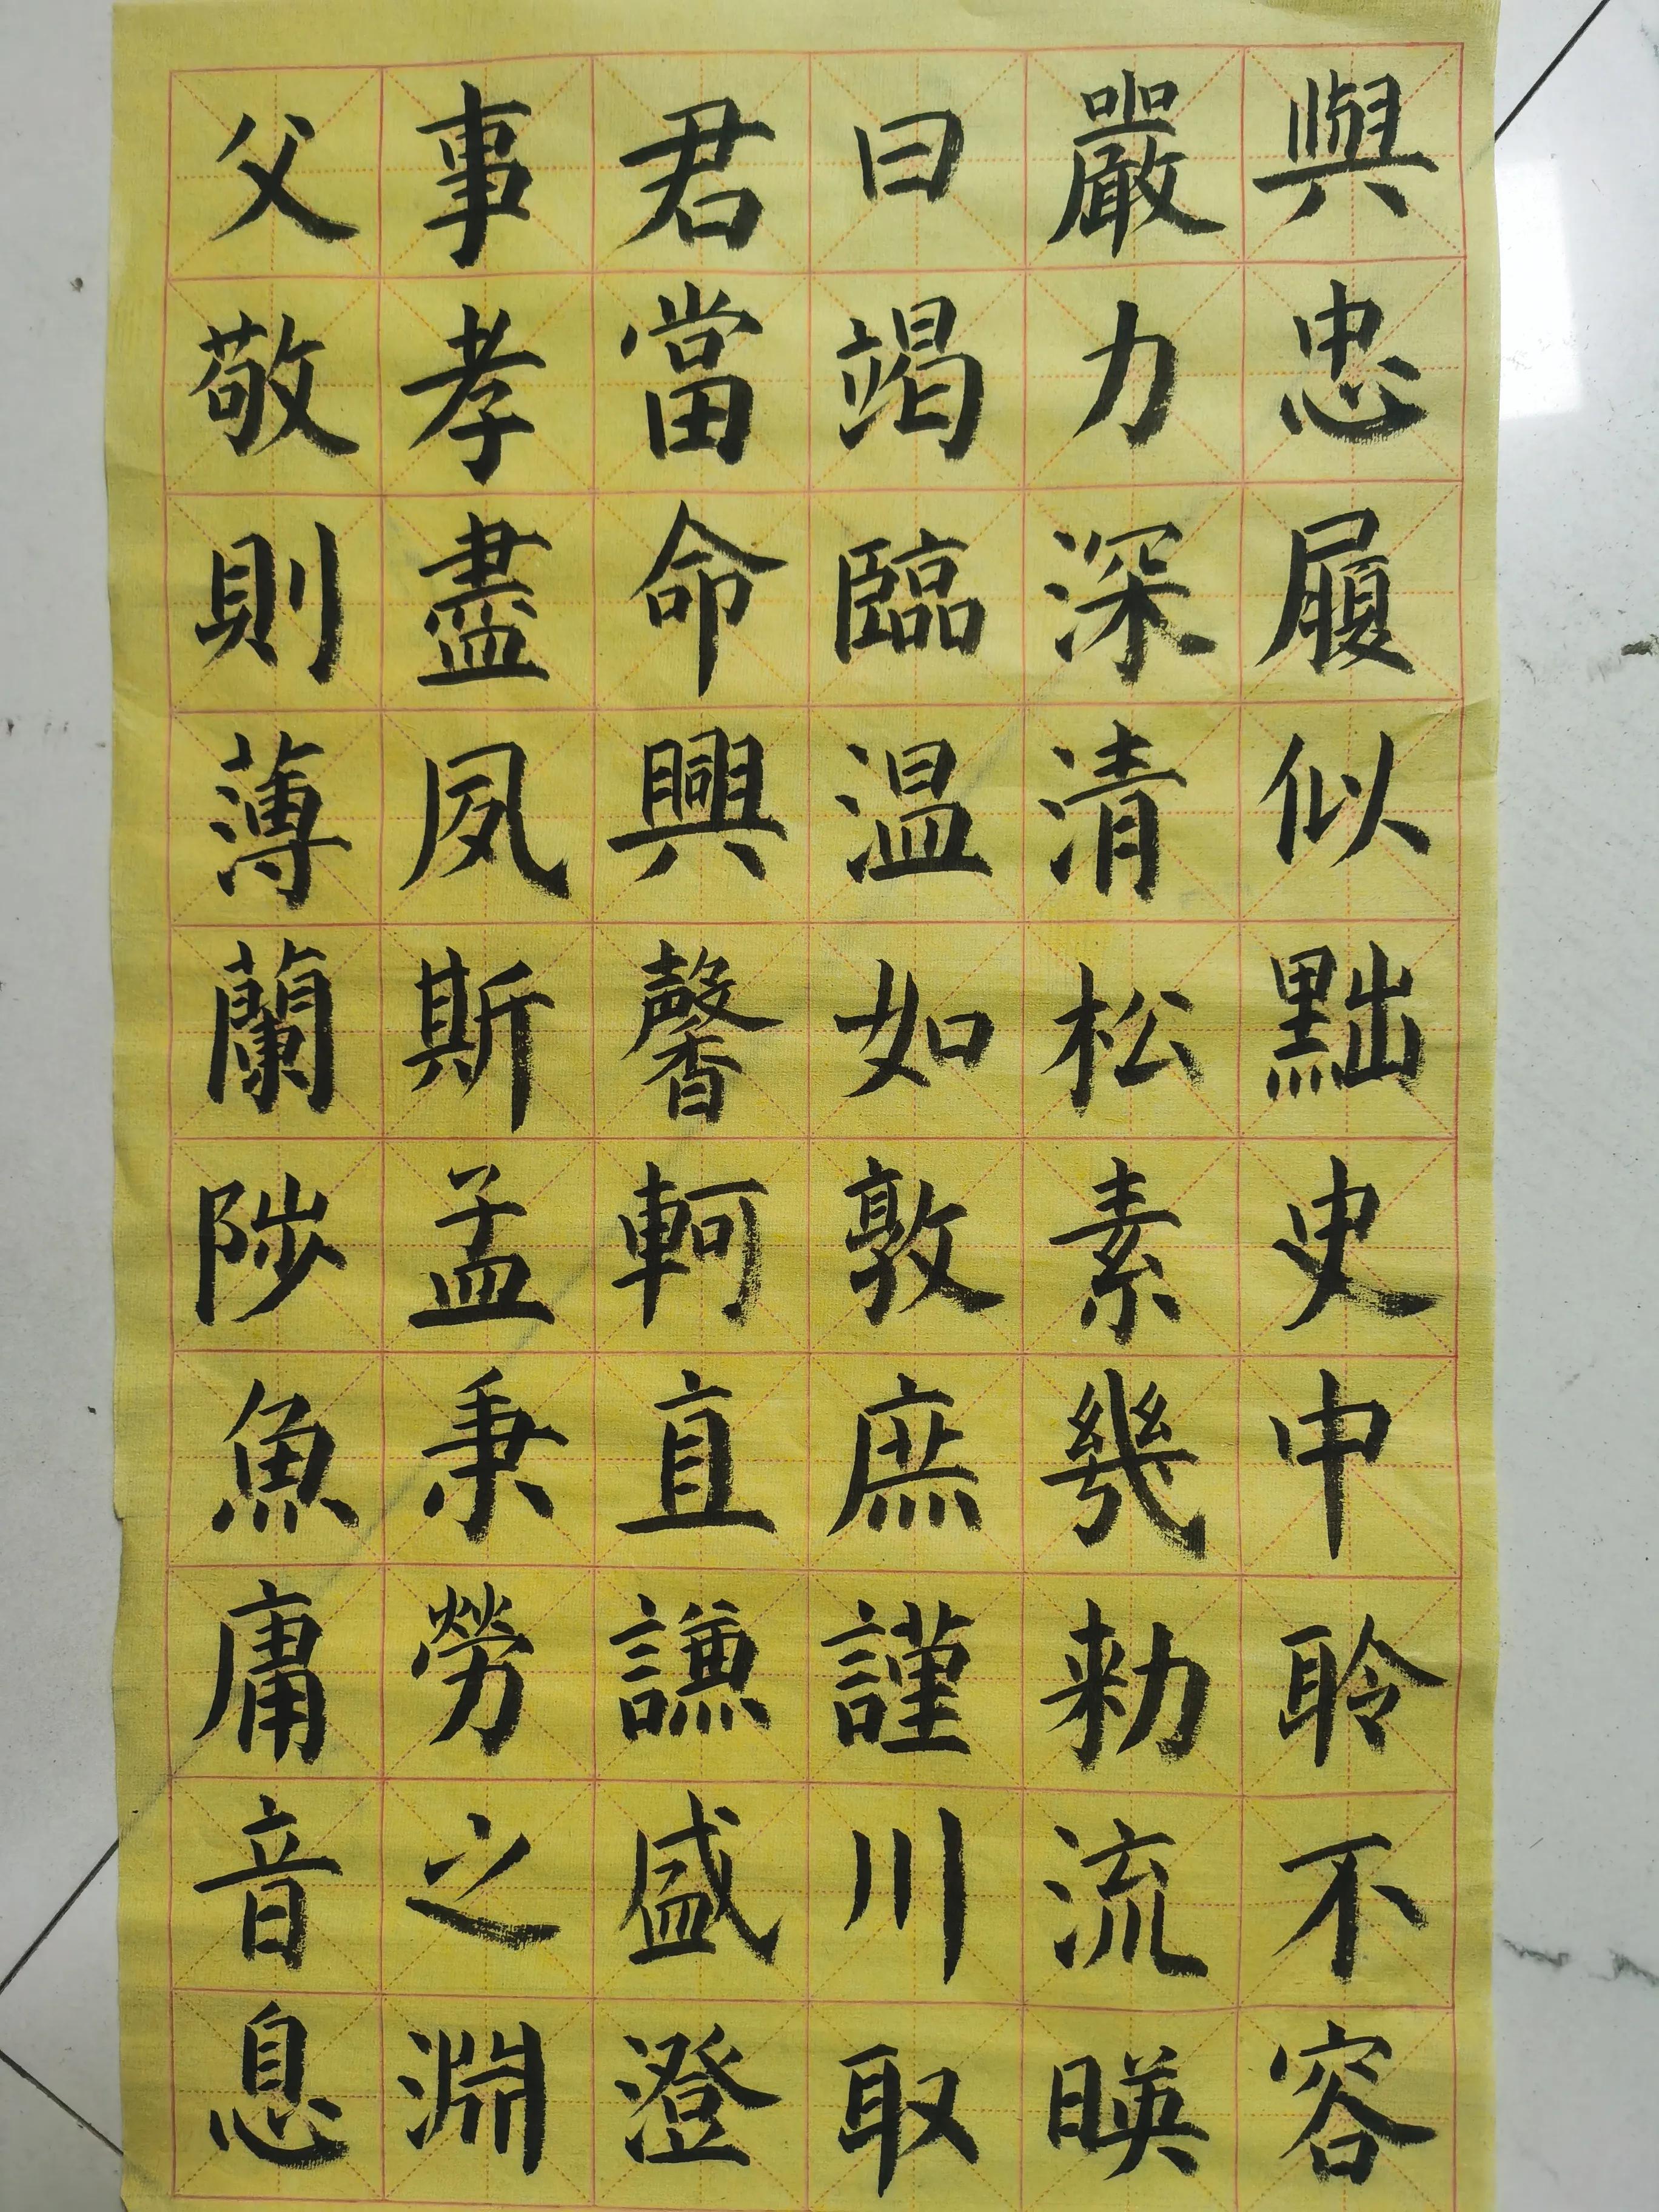 父事君曰嚴與
敬孝當竭力忠
則盡命臨深履
薄夙興温清似
蘭斯馨如松黜
陟孟軻敦素史
魚秉直庶幾中
庸勞謙謹勑聆
音之盛川流不
息淵澄取暎容